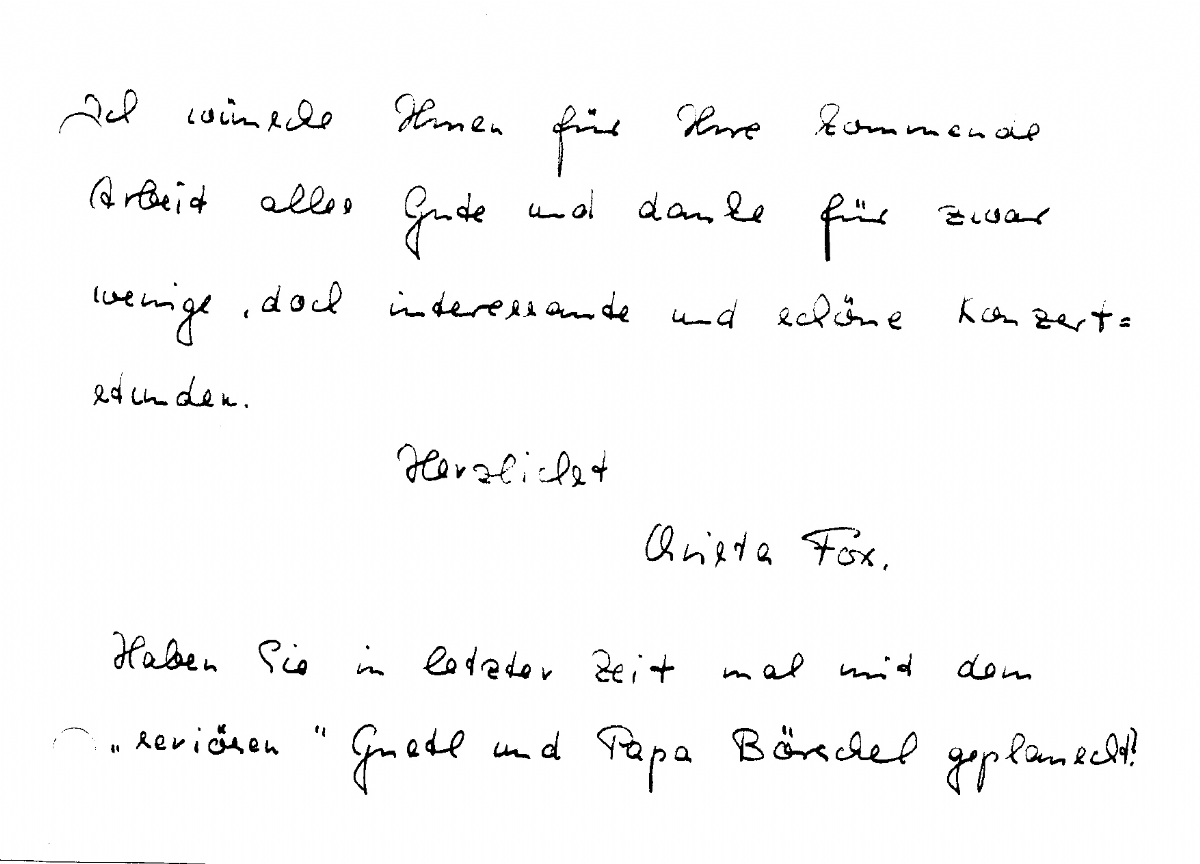 Ich wünsche Ihnen für Ihre kommende
Arbeit alles Gute und danke für zwar
wenige, doch interessante und schöne Konzert=
stunden.
Herzlichst
Christa Fox.
Haben Sie in letzter Zeit mal mit dem
„seriösen" und Papa geplanscht?